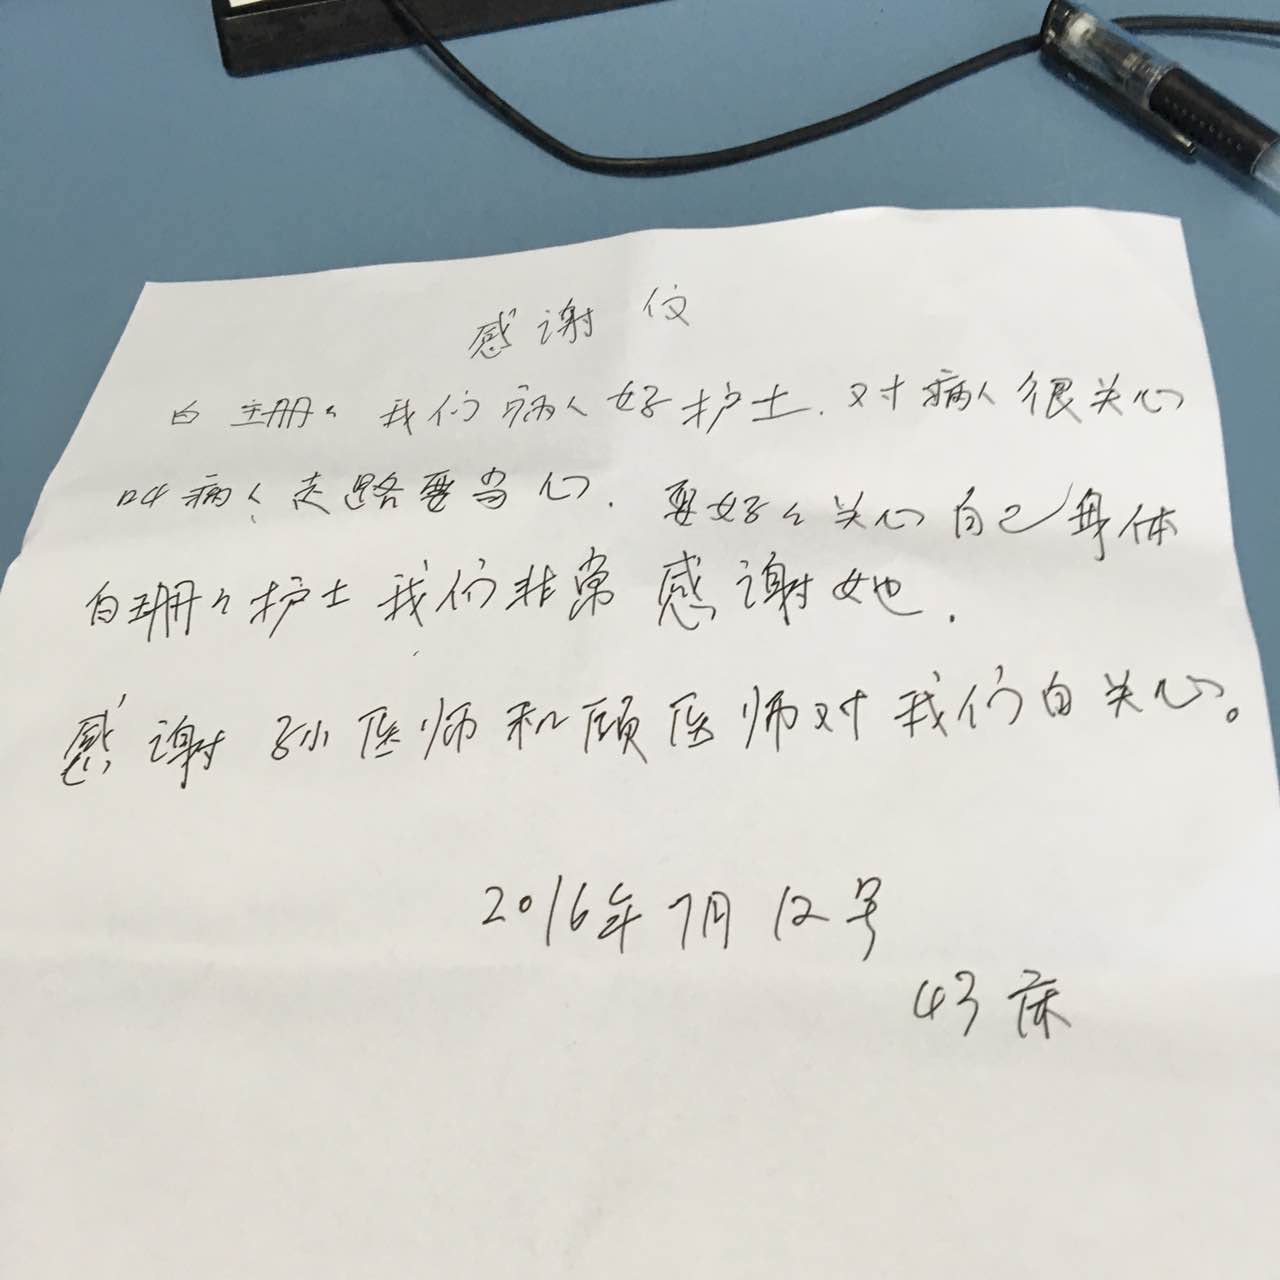 感谢仪
白珊々我们病人好护士.对病人很关心
叫病人走路要当心.要好々关心自己身体
白珊々护士我们非常感谢她.
感谢孙医师和顾医师对我们白关心。
2016年7月12号
43床